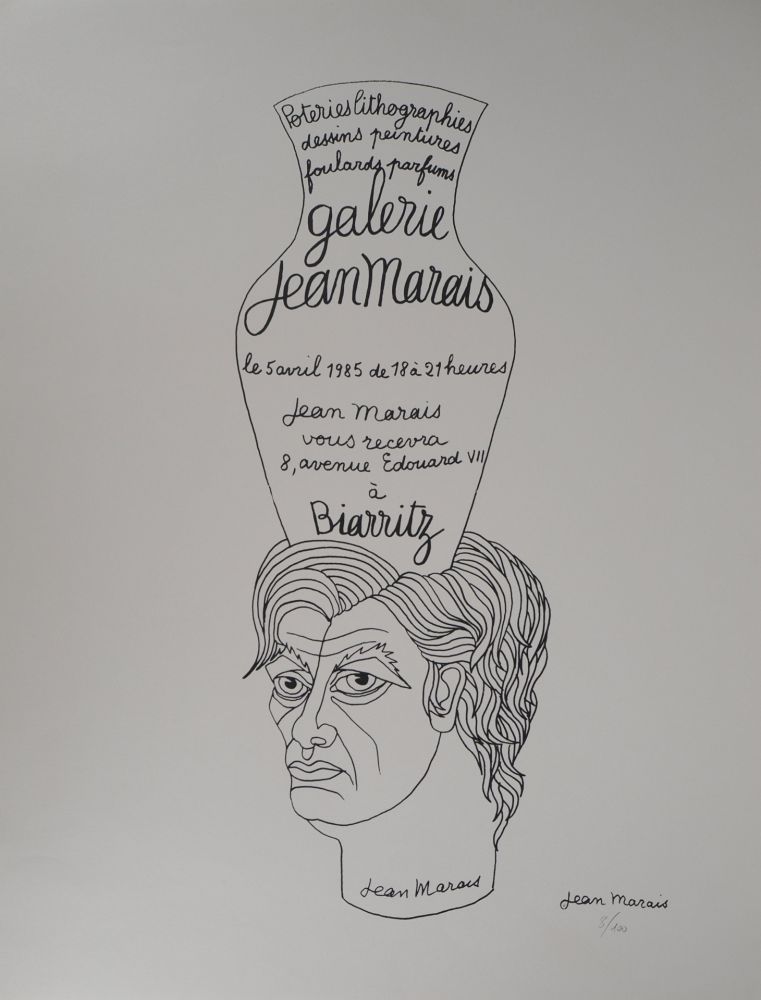 Poteries lithographies
dessins peintures
foulards parfums
galerie
Jean Marais
le 5 avril 1985 de 18 à 21 heures
Jean Marais
vous recevra
8, avenue Edouard VII
à
Biarritz
Jean Marais
Jean Marais
3/100